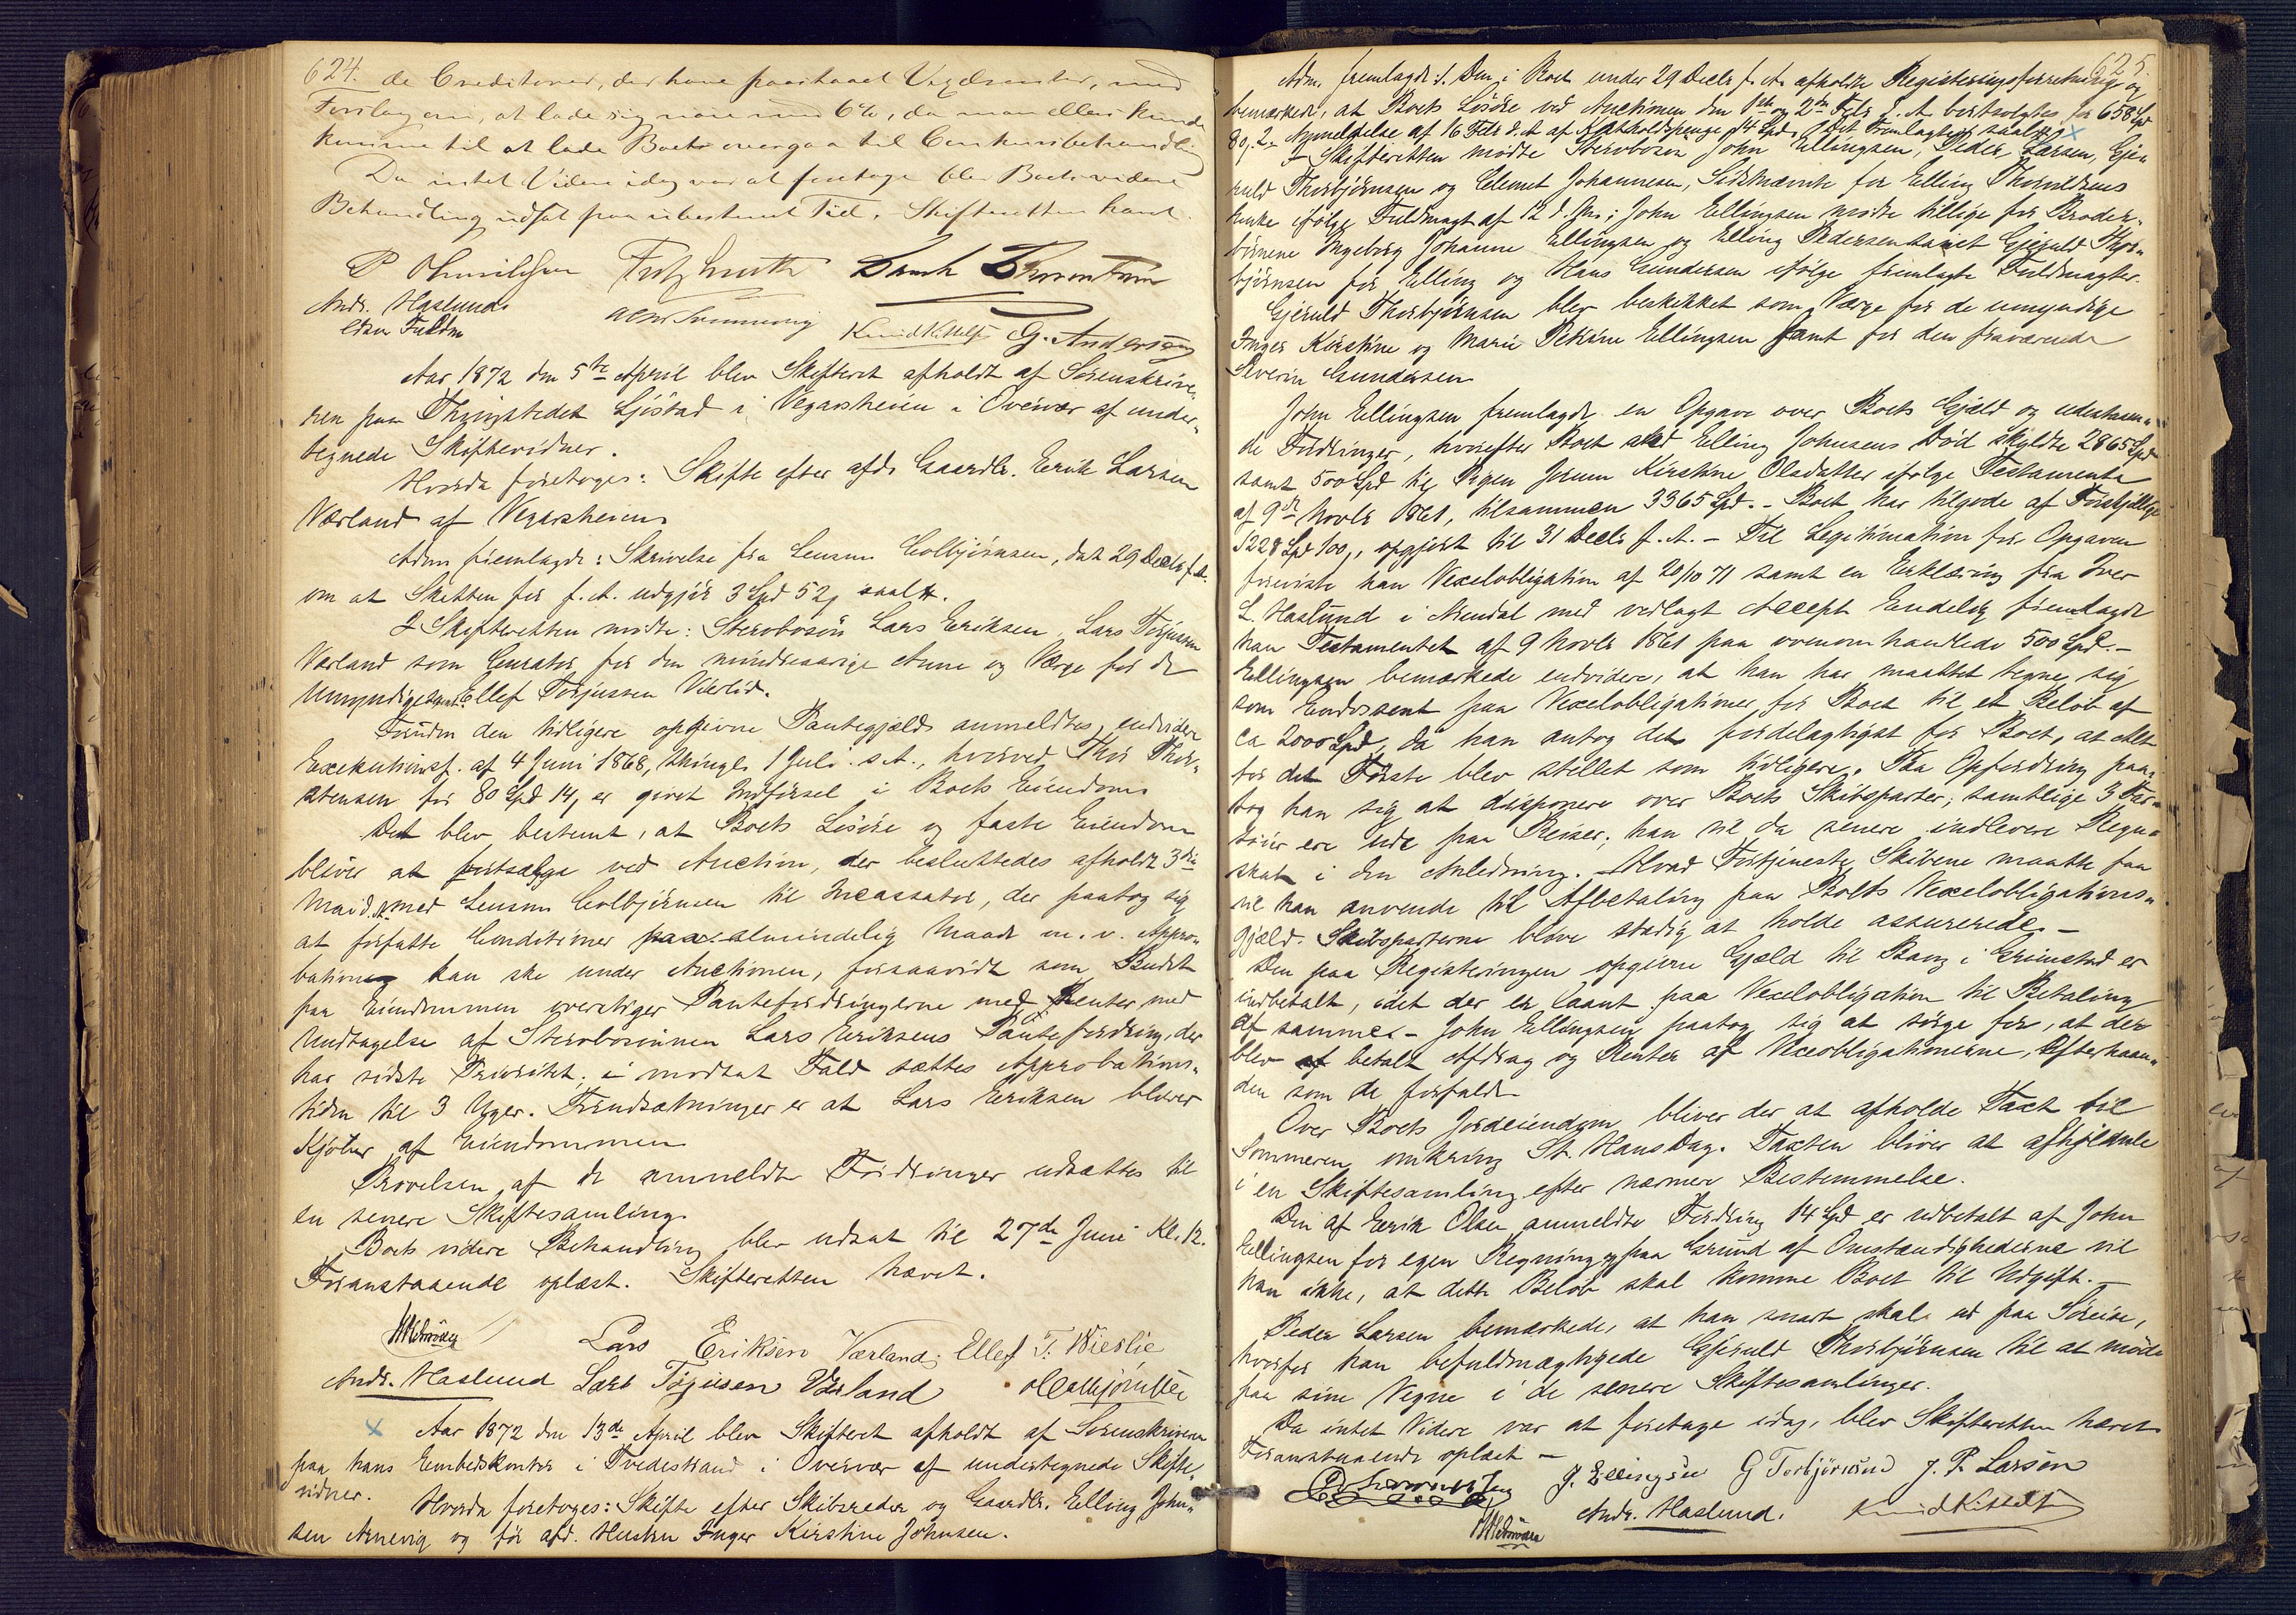 624.
de Creditorer, der have paastaaet Vegdsenter, med
Forslag om, at lade sig nøie med 6%, da man ellers kunde
komme til at lade Boets overgaa til Conkursbehandling
Da intet Videre idag var at foretage blev Boets videre
Behandling udsat paa ubestemt Tid. Skifteretten hævet.
Fritz Smith
Andr. Haslund
efter Fuldm
Knud Kittelsen G. Andersen
Aar 1872 den 5te April blev Skifteret afholdt af Sorenskrive„
ren paa Thingstedet Sjøstad i Vegarsheien i Overvær af under„
tegnede Skiftevidner.
Hvorda foretoges: Skifte efter afd. Gaardbr. Erik Larsen
Værland af Vegarsheien
Adm fremlagde: Skrivelse fra Lensm. Colbjørnsen, dat 29 Decbr f.A.
om at Skatten for f.A. udgjør 3 Spd 52 s saal.
I Skifteretten mødte: Stervbosøn Lars Eriksen, Lars Torjussen
Værland som Curator for den mindreaarige Anne og Værge for de
Umyndige samt Ellef Torjussen Vierlid.
Foruden den tidligere opgivne Pantegjæld anmeldtes endvidere
Exekutionsf. af 4 Juni 1868, thingl. 1 Juli s.A., hvorved Thor Thor„
stensen for 80 Spd 14, er givet Indførsel i Boets Eiendom
Det blev bestemt, at Boets Løsøre og faste Eiendom
bliver at bortsælge ved Auction, der besluttedes afholdt 3die
Mai d.A. med Lensm. Colbjørnsen til Incassator, der paatog sig
at forfatte Conditioner paa almindelig Maade m. v. Appro„
bation kan ske under Auctionen, forsaavidt som Budet
paa Eiendommen overstiger Pantefordringerne med Renter med
Undtagelse af Stervbosønnen Lars Eriksens Pantefordring, der
har sidste Prioritet; i modsat Fald sættes Approbations„
tiden til 3 Uger. Forudsætningen er at Lars Eriksen bliver
Kjøber af Eiendommen
Prøvelsen af de anmeldte Fordringer udsættes til
en senere Skiftesamling.
Boets videre Behandling blev udsat til 27de Juni Kl. 12.
Foranstaaende oplæst. Skifteretten hævet.
Lars Eriksen Værland; Ellef T. Wierlie
Andr. Haslund Lars Torjusen Værland
Aar 1872 den 13de April blev Skifteret afholdt af Sorenskriveren
paa hans Embedskontor i Tvedestrand i Overvær af undertegnede Skifte„
vidner.
Hvorda foretoges: Skifte efter Skibsreder og Gaardbr. Elling John„
sen Arnevig og før afd. Hustru Inger Kirstine Johnsen.
625.
Adm. fremlagde: 1. Den i Boet under 29 Decbr f. A. afholdte Registreringsforretning og
bemærkede, at Boets Løsøre ved Auctionen den 1ste og 2den Febr d. A. bortsolgtes for 658 Spd
80 s. 2. Anmeldelse af 16 Febr d. A. af 14 Spd. Det Fremlagte saal.
I Skifteretten mødte Stervbosøn John Ellingsen, Peder Larsen, Gje„
ruld Thorbjørnsen og Clemet Johannesen, Sidstnævnte for Elling Thorvildsens
Enke ifølge Fuldmagt af 12 d. Ms.; John Ellingsen mødte tillige for Broder„
børnene Ingeborg Johanne Ellingsen og Elling Pedersen samt Gjeruld Thor„
bjørnsen for Elling og Hans Gundersen ifølge fremlagte Fuldmagter.
Gjeruld Thorbjørnsen blev beskikket som Værge for de umyndige
Inger Kirstine og Marie Petrine Ellingsen samt for den fraværende
Severin Gundersen
John Ellingsen fremlagde en Opgave over Boets Gjæld og udestaaen„
de Fordringer, hvorefter Boet ved Elling Johnsens Død skyldte 2865 Spd
samt 500 Spd til Pigen Jorunn Kirstine Olsdatter ifølge Testamente
af 9de Novbr 1861, tilsammen 3365 Spd. – Boet har tilgode af Forskjellige
1228 Spd 100 s, opgjort til 31 Decbr f. A. – Til Legitimation for Opgaven
foreviste han Vexelobligation af 20/10 71 samt en Erklæring fra Iver
L. Haslund i Arendal med vedlagt Accept. Endelig fremlagde
han Testamentet af 9 Novbr 1861 paa ovenomhandlede 500 Spd. –
Ellingsen bemærkede endvidere, at han har maattet tegne sig
som Endossent paa Vexelobligationer for Boet til et Beløb af
ca 2000 Spd, da han antog det fordelagtigst for Boet, at Alt
for det Første blev stillet som tidligere. Paa Opfordring paa„
tog han sig at disponere over Boets Skibsparter; samtlige 3 Far„
tøier ere ude paa Reiser; han vil da senere indlevere Regn„
skab i den Anledning. Hvad Fortjeneste Skibene maatte faa
vil han anvende til Afbetaling paa Boets Vexelobligations„
gjæld. Skibsparterne blive stadig at holde assurerede. –
Den paa Registreringen opgivne Gjæld til Bang i Grimstad er
indbetalt, idet der er laant paa Vexelobligation til Betaling
af samme. – John Ellingsen paatog sig at sørge for, at der
blev betalt Afdrag og Renter af Vexelobligationerne, efterhaan„
den som de forfaldt
Over Boets Jordeiendom bliver der at afholde Taxt til
Sommeren omkring St. Hans Dag. Taxten bliver at afhjemle
i en Skiftesamling efter nærmere Bestemmelse.
Den af Erik Olsen anmeldte Fordring 14 Spd er udbetalt af John
Ellingsen for egen Regning og paa Grund af Omstændighederne vil
han ikke, at dette Beløb skal komme Boet til Udgift. –
Peder Larsen bemærkede, at han snart skal ud paa Søreise,
hvorfor han befuldmægtigede Gjeruld Thorbjørnsen til at møde
paa sine Vegne i de senere Skiftesamlinger.
Da intet Videre var at foretage idag, blev Skifteretten hævet
Foranstaaende oplæst –
J. Ellingsen G Torbjørnsen J. P. Larsen
Andr. Haslund. Knud Kittelsen